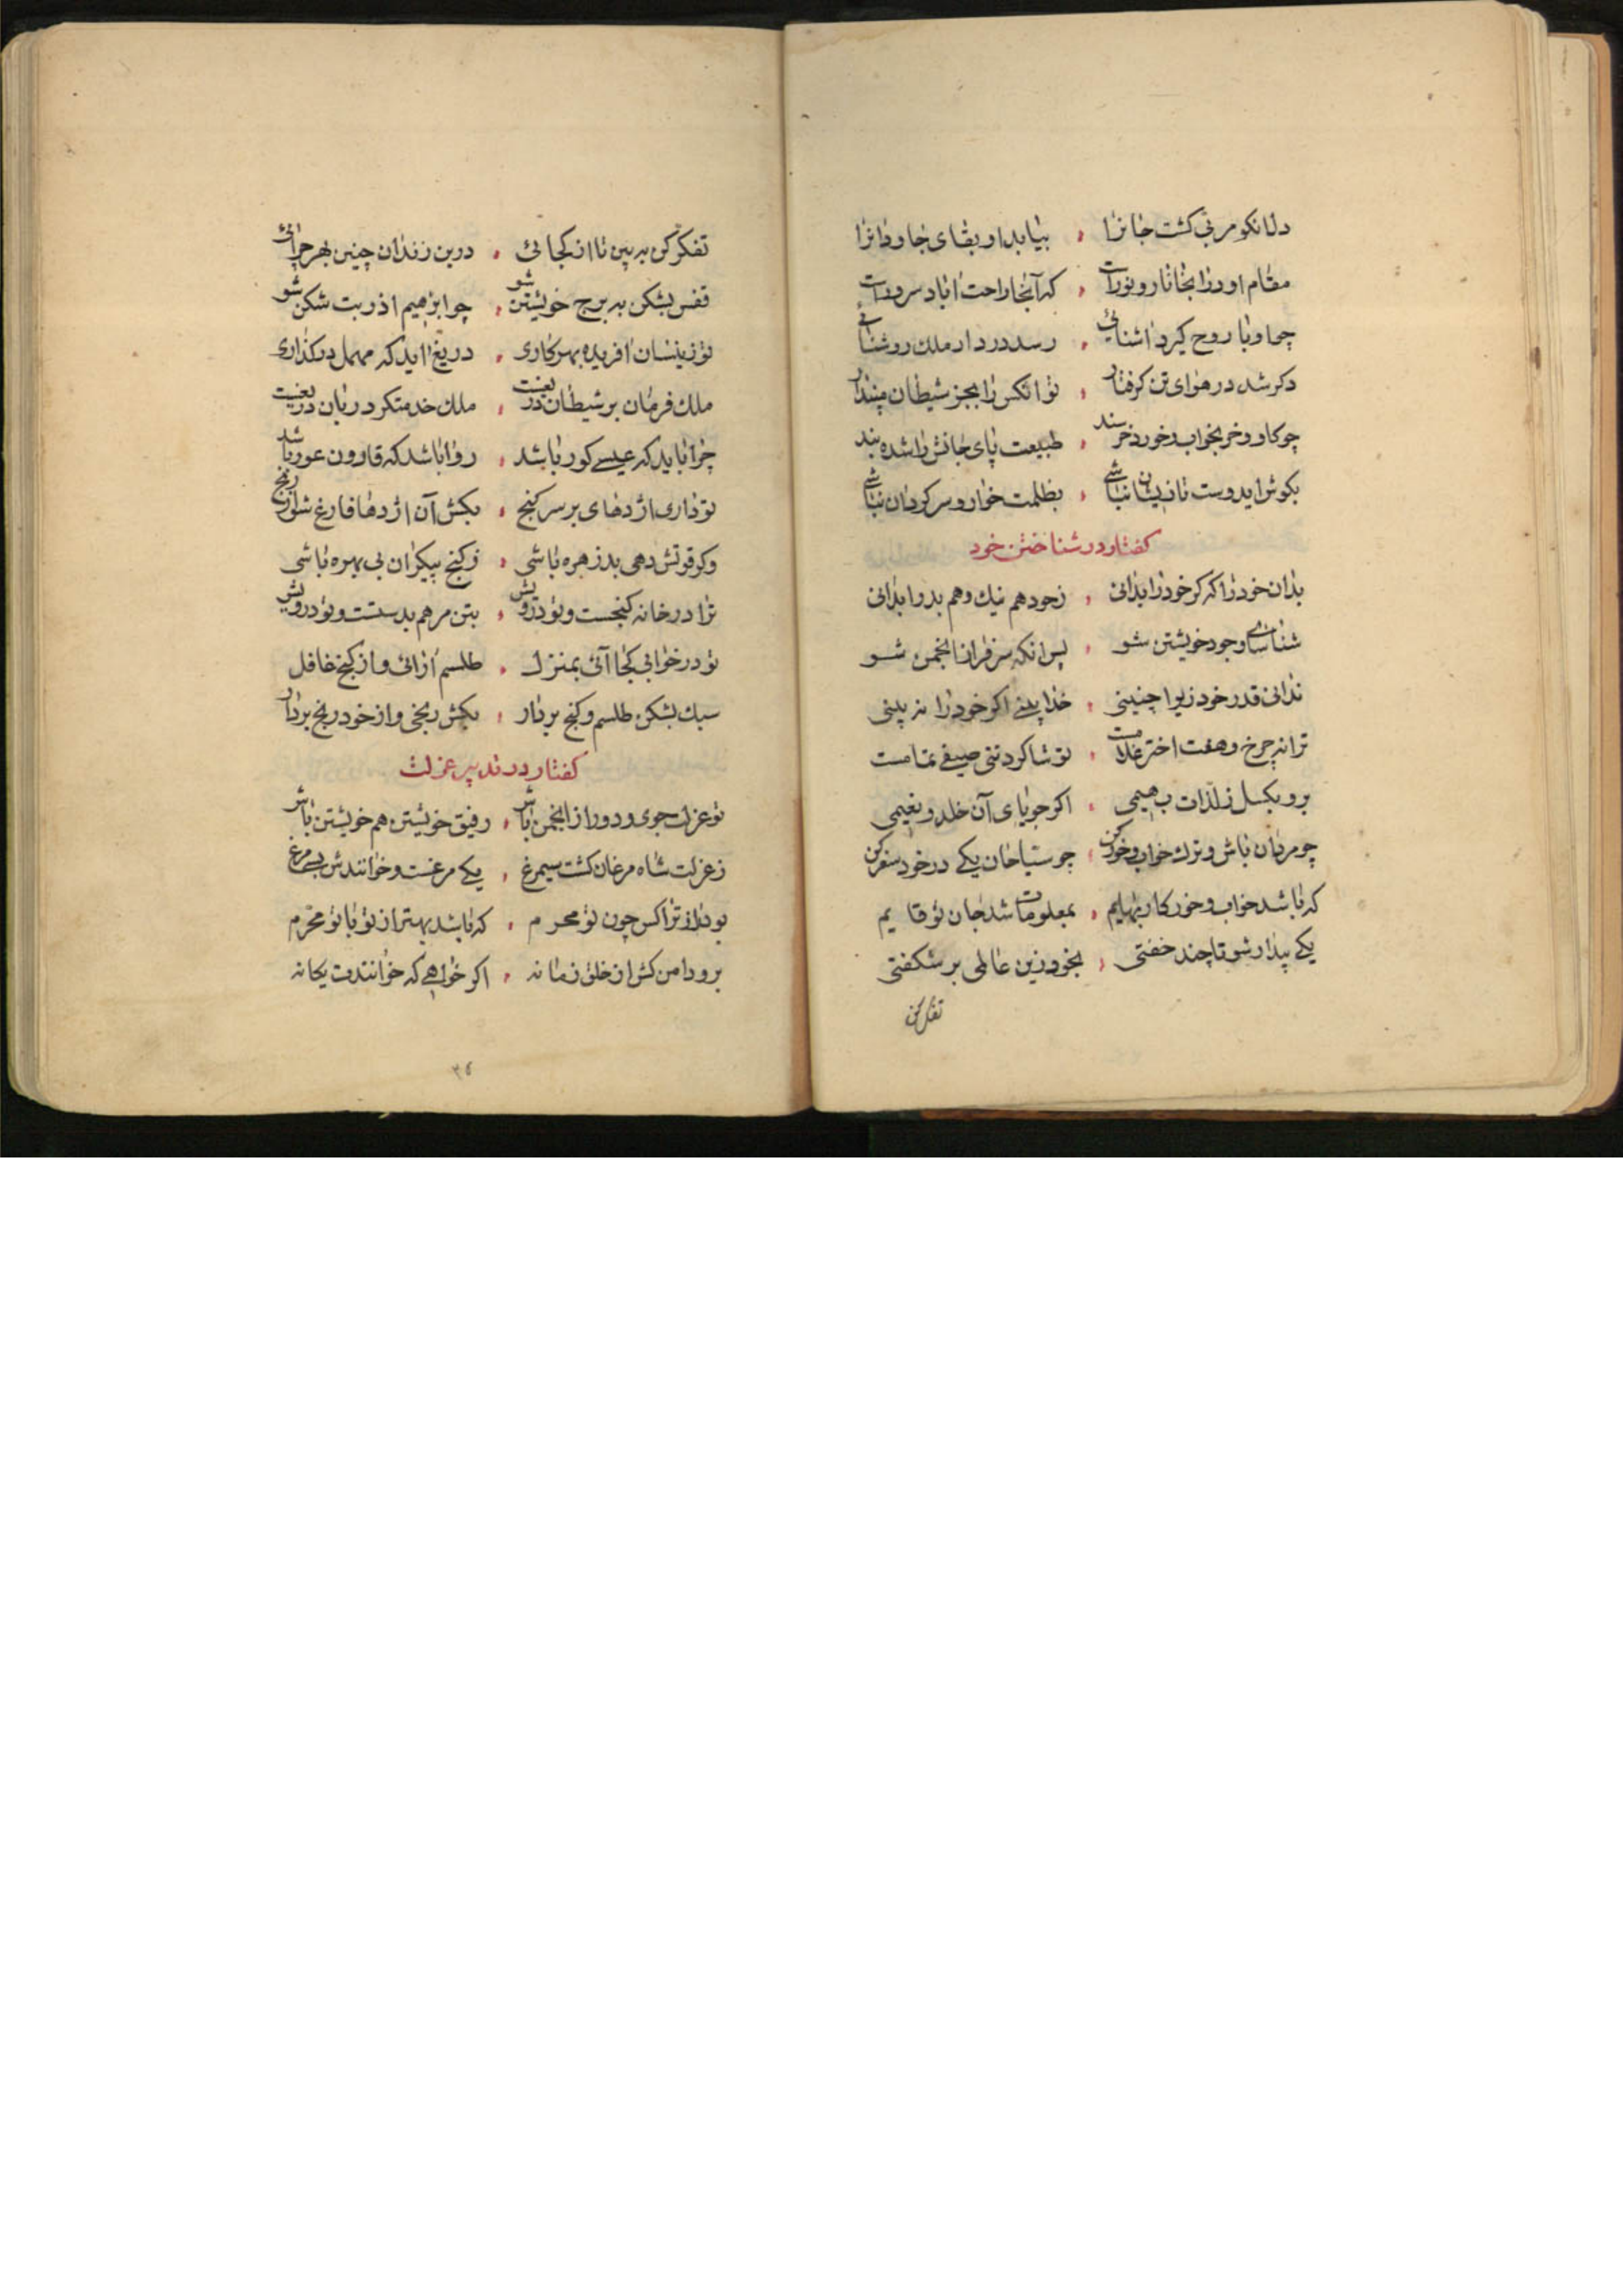 دلانکو مربی کشت جانرا ، بیابد او بقای جاودانرا
مقام او در انجا نار و نوراست ، که آنجا راحت اباد سروراست
چو او با روح کیرد اشنائی ، رسد در دار ملک روشنائی
دکر شد در هوای تن کرفتار ، تو انکس را بجز شیطان مپندار
چو کاو و خر بخواب و خور خرسند ، طبیعت پای جانش را شده بند
بکوش ایدوست تا زیشان نباشی ، بظلمت خوار و سرکردان نباشی
کفتار در شناختن خود
بدان خود را که کر خود را بدانی ، زخود هم نیک و هم بد را بدانی
شناسای وجود خویشتن شو ، پس انکه سرفراز انجمن شو
ندانی قدر خود زیرا چنینی ، خدا بینی اکر خود را نه بینی
ترا نه چرخ و هفت اختر غلامست ، تو شاکرد تنی حیفی تمامست
برو بکسل ز لذات بهیمی ، اکر جویای آن خلد و نعیمی
چو مردان باش و ترک خواب و خور کن ، چو سیاحان یکی در خود سفر کن
که باشد خواب و خور کار بهایم ، بمعلومات شد جان تو قایم
یکی بیدار شو تا چند خفتی ، بخود زین عالمی بر شکفتی
تفکر کن
تفکر کن به بین تا از کجائی ، درین زندان چنین بهر چرائی
قفس بشکن به برج خویشتن شو ، چو ابرهیم اذر بت شکن شو
تو زینسان افریده بهر کاری ، دریغ اید که مهمل در کذاری
ملک فرمان بر شیطان دریغست ، ملک خدمتکر دربان دریغست
چرا باید که عیسی کور باشد ، روا باشد که قارون عور باشد
تو داری اژدهای بر سر کنج ، بکش آن اژدها فارغ شو از رنج
وکر قوتش دهی بد زهره باشی ، ز کنج بیکران بی بهره باشی
ترا در خانه کنجست و تو درویش ، بتن مرهم بدستت و تو در ریش
تو در خوابی کجا آئی بمنزل ، طلسم آرائی و از کنج غافل
سبک بشکن طلسم و کنج بردار ، بکش رنجی و از خود رنج بردار
کفتار در تدبیر عزلت
تو عزلت جوی و دور از انجمن باش ، رفیق خویشتن هم خویشتن باش
ز عزلت شاه مرغان کشت سیمرغ ، یکی مرغست و خوانندش سی مرغ
بود راز ترا کس چون تو محرم ، که باشد بهتر از تو با تو محرم
برو دامن کش از خلق زمانه ، اکر خواهی که خوانندت یکانه
٣٤